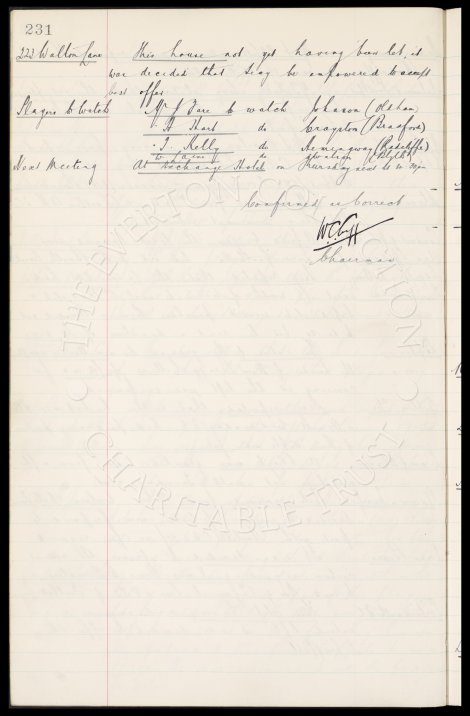 231
222 Walton Lane This house not yet having been let, it
was decided that Secy be empowered to accept
best offer
Players to Watch Mr J. Fare to watch Johnson (Oldham)
" H Hart do Crayston (Bradford)
" T. Kelly do Hemingway (Radcliffe)
do (Blyth)
Next Meeting At Exchange Hotel on Thursday next at
Confirmed as Correct
W.C.Cuff
Chairman
THE EVERTON COLLECTION
CHARITABLE TRUST